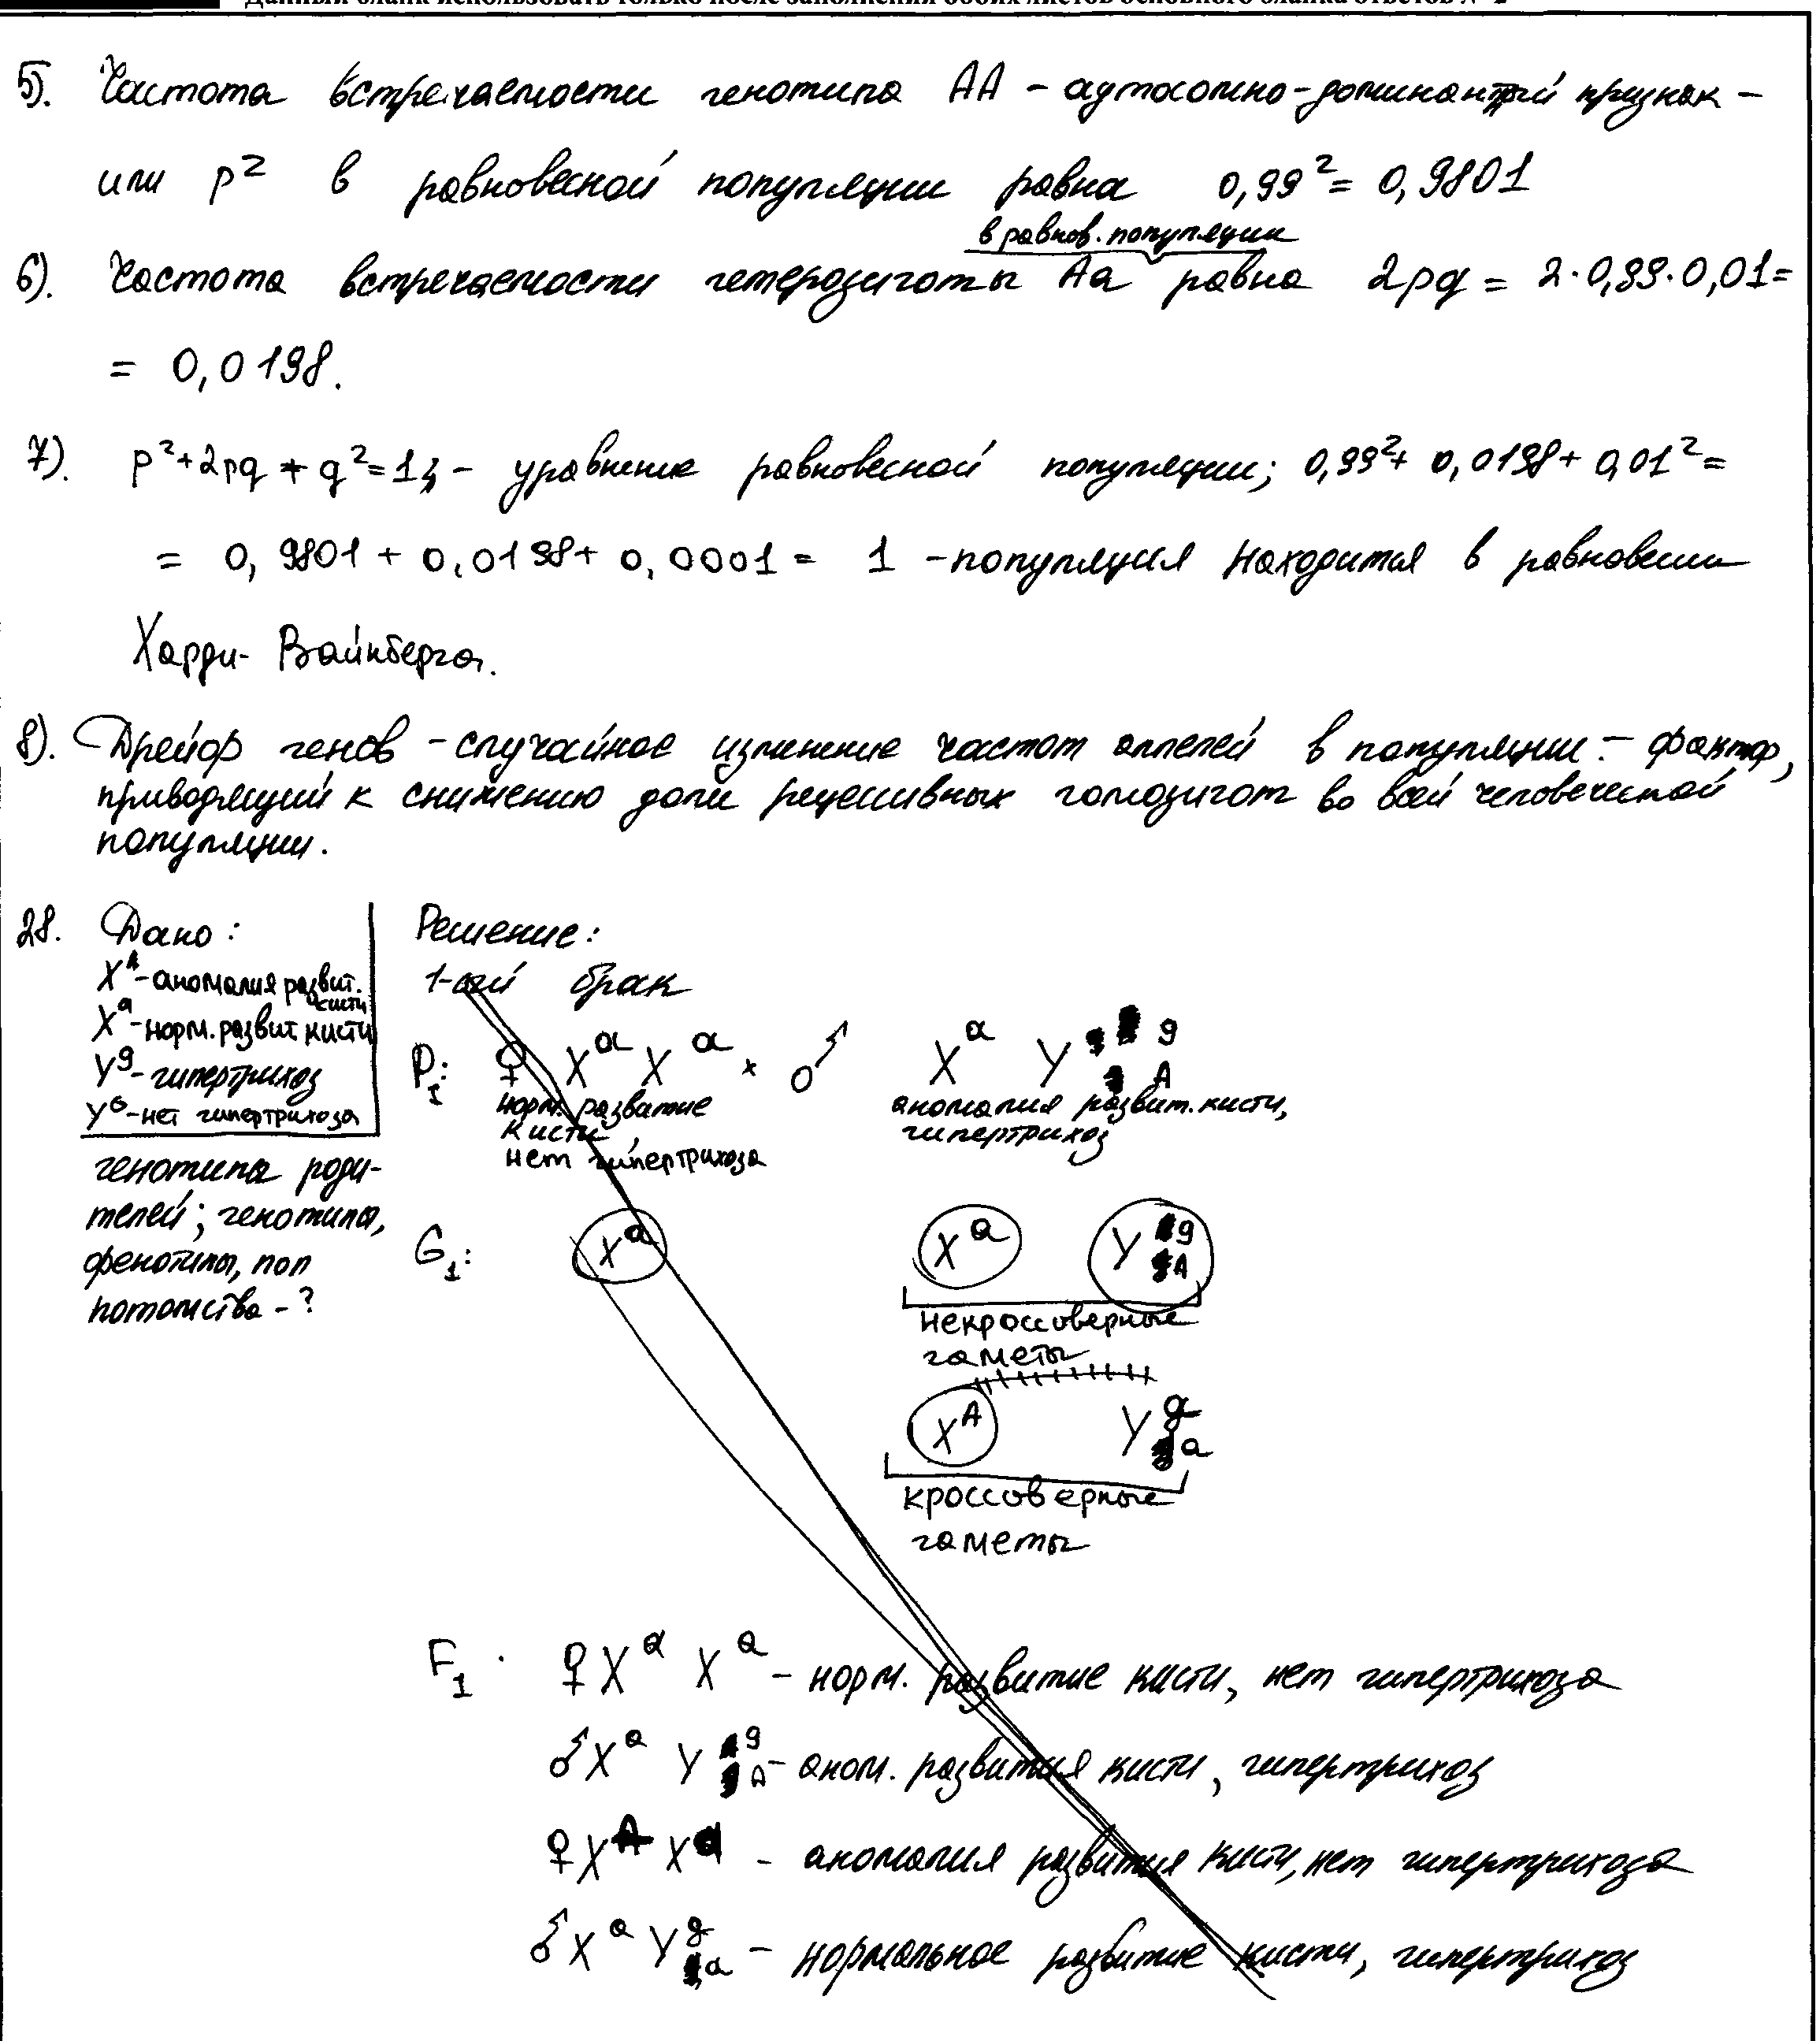 Данный бланк использовать только после заполнения обоих листов основного бланка ответов № 2
5). Частота встречаемости генотипа АА - аутосомно-доминантный признак -
или p² в равновесной популяции равна 0,99² = 0,9801
в равнов. популяции
6). Частота встречаемости гетерозиготы Аа равна 2pq = 2·0,99·0,01=
= 0,0198.
7). p²+2pq+q²=1 - уравнение равновесной популяции; 0,99²+ 0,0198+ 0,01²=
= 0,9801 + 0,0198+ 0,0001 = 1 - популяция находится в равновесии
Харди- Вайнберга.
8). Дрейф генов - случайное изменение частот аллелей в популяции - фактор,
приводящий к снижению доли рецессивных гомозигот во всей человеческой
популяции.
28. Дано: Решение:
Xᴬ-аномалия развит. кисти
1-ый брак
Xᵃ-норм. развит кисти
Yᵍ- гипертрихоз
Yᴳ-нет гипертрихоза
P₁: ♀ Xᵃ Xᵃ × ♂ Xᵃ Y g A
норм. развитие кисти, нет гипертрихоза
аномалия развит. кисти, гипертрихоз
генотипы роди-
телей; генотипы,
фенотипы, пол
потомства - ?
G₁: Xᵃ Xᵃ Y g A
некроссоверные
гаметы
Xᴬ Y g a
кроссоверные
гаметы
F₁: ♀ Xᵃ Xᵃ - норм. развитие кисти, нет гипертрихоза
♂ Xᵃ Y g A - аном. развития кисти, гипертрихоз
♀ Xᴬ Xᵃ - аномалия развития кисти, нет гипертрихоза
♂ Xᵃ Y g a - нормальное развитие кисти, гипертрихоз